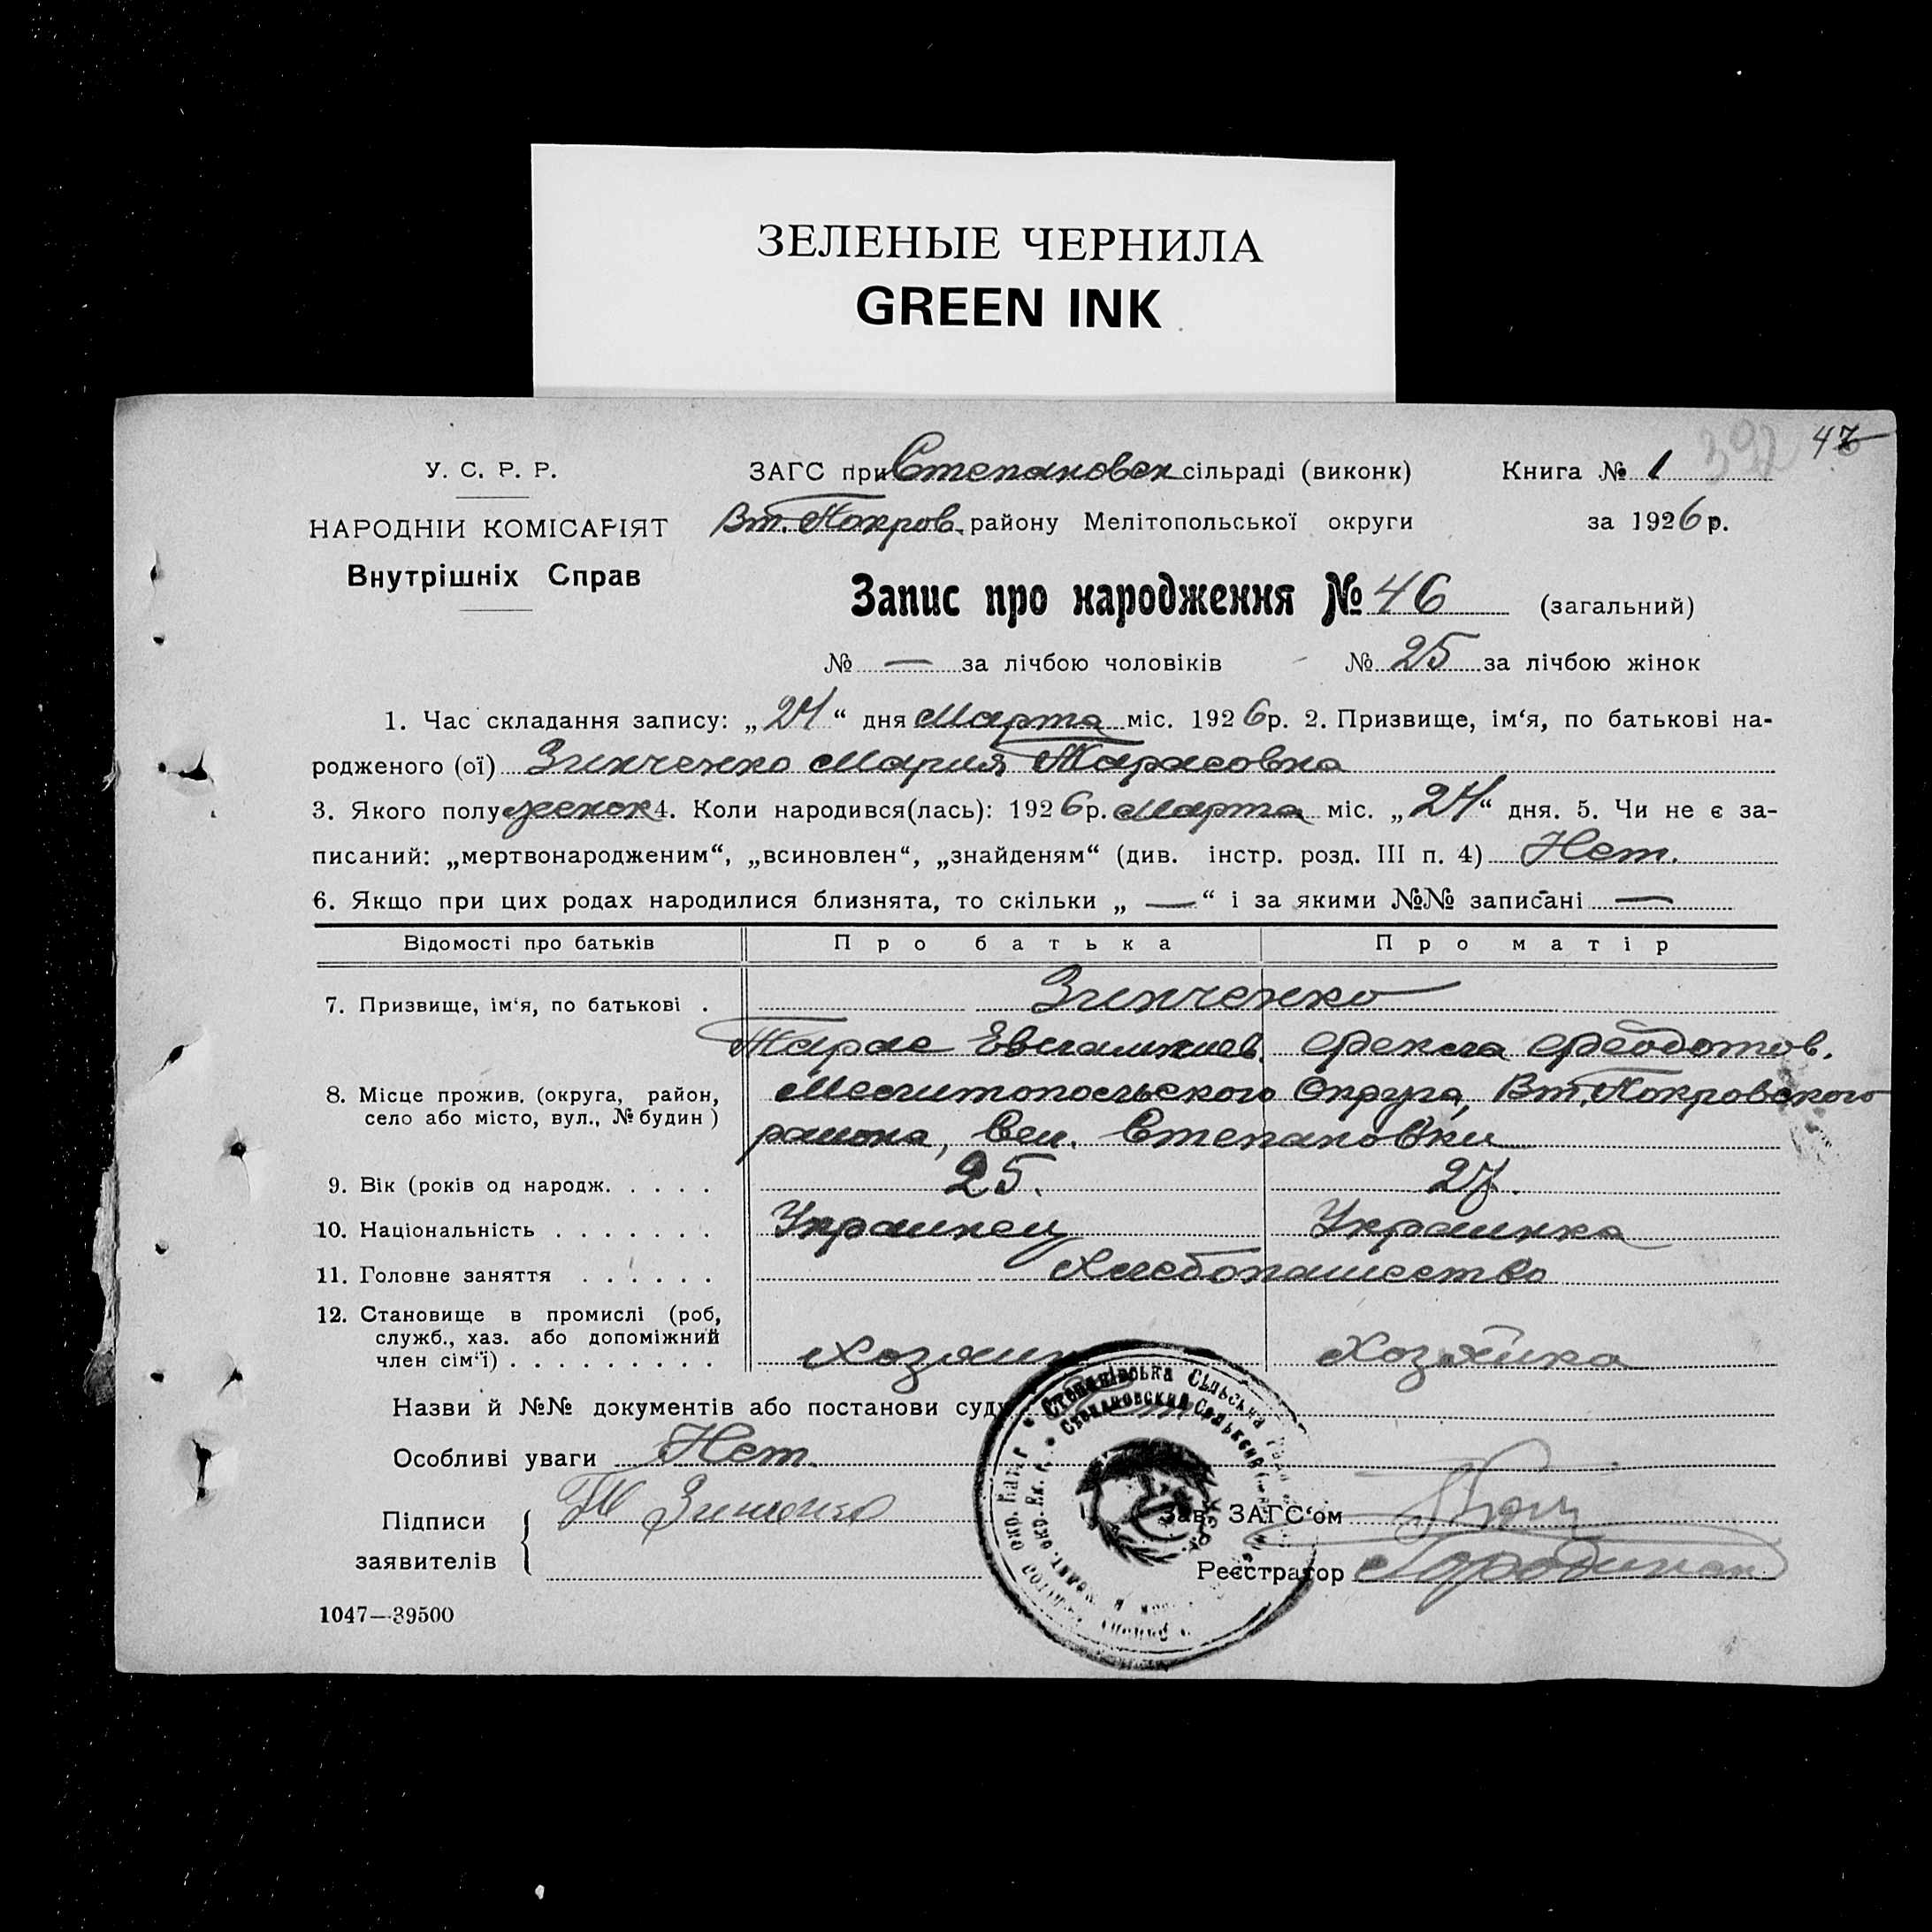 ЗЕЛЕНЫЕ ЧЕРНИЛА
GREEN INK
392 47
У. С. Р. Р.
НАРОДНІЙ КОМІСАРІЯТ
Внутрішніх Справ
ЗАГС при Степановск сільраді (виконк) Книга № 1
Вт. Покров. району Мелітопольської округи за 1926 р.
Запис про народження № 46 (загальний)
№ — за лічбою чоловіків № 25 за лічбою жінок
1. Час складання запису: „24“ дня Марта міс. 1926 р. 2. Призвище, ім‘я, по батькові на-
родженого (ої) Зинченко Мария Тарасовна
3. Якого полу женск 4. Коли народився(лась): 1926 р. Марта міс. „24“ дня. 5. Чи не є за-
писаний: „мертвонародженим“, „всиновлен“, „знайденям“ (див. інстр. розд. III п. 4) Нет.
6. Якщо при цих родах народилися близнята, то скільки „ — “ і за якими №№ записані —
Відомості про батьків Про батька Про матір
7. Призвище, ім‘я, по батькові . Зинченко
Тарас Евлампиев. Фекла Феодотов.
8. Місце прожив. (округа, район, село або місто, вул., № будин) Мелитопольского Округа, Вт. Покровского
района, Сел. Степановки
9. Вік (років од народж. . . . . 25. 27.
10. Національність . . . . . . . Украинец Украинка
11. Головне заняття . . . . . . Хлебопашество
12. Становище в промислі (роб, служб., хаз. або допоміжний член сім‘ї) . . . . . . . . . Хозяин Хозяйка
Назви й №№ документів або постанови суду
Особливі уваги Нет.
Підписи заявителів Т Зинченко
Зав. ЗАГС‘ом
Реєстратор
Степанівська Сільська Рада
Степановский Сельский
1047—39500